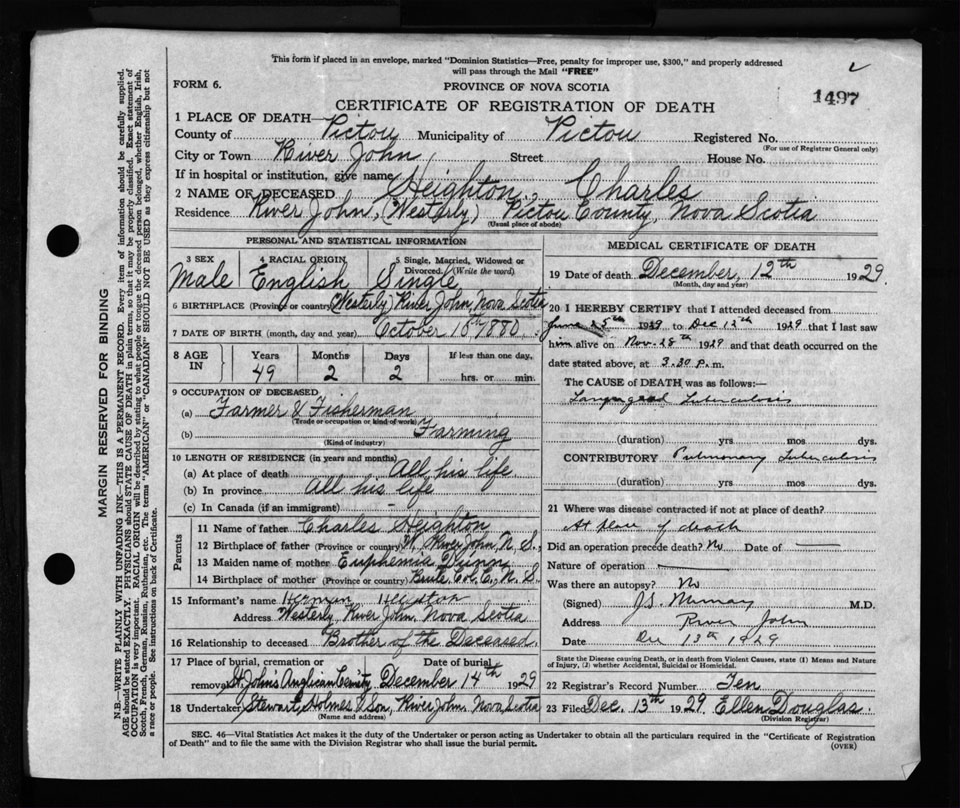 This form if placed in an envelope, marked "Dominion Statistics—Free, penalty for improper use, $300," and properly addressed
will pass through the Mail "FREE"
FORM 6.
PROVINCE OF NOVA SCOTIA
1497
CERTIFICATE OF REGISTRATION OF DEATH
1 PLACE OF DEATH—
County of Pictou Municipality of Pictou Registered No.
(For use of Registrar General only)
City or Town River John Street House No.
If in hospital or institution, give name
2 NAME OF DECEASED Heighton, Charles
Residence River John, (Westerly) Pictou County, Nova Scotia
(Usual place of abode)
PERSONAL AND STATISTICAL INFORMATION
3 SEX Male
4 RACIAL ORIGIN English
5 Single, Married, Widowed or Divorced. (Write the word) Single
6 BIRTHPLACE (Province or country) Westerly River John, Nova Scotia
7 DATE OF BIRTH (month, day and year) October 10th 1880.
8 AGE IN
Years Months Days If less than one day,
49 2 2 hrs. or min.
9 OCCUPATION OF DECEASED
(a) Farmer & Fisherman
(Trade or occupation or kind of work)
(b) Farming
(Kind of industry)
10 LENGTH OF RESIDENCE (in years and months)
(a) At place of death All his life
(b) In province All his life
(c) In Canada (if an immigrant) –
Parents
11 Name of father Charles Heighton
12 Birthplace of father (Province or country) W. River John, N. S.,
13 Maiden name of mother Euphemia Dunn
14 Birthplace of mother (Province or country) Brule, Col. C., N. S.
15 Informant's name Herman Heighton
Address Westerly, River John, Nova Scotia
16 Relationship to deceased Brother of the Deceased.
17 Place of burial, cremation or removal St John's Anglican Cem'ty Date of burial December 14th 1929
18 Undertaker Stewart Holmes & Son, River John, Nova Scotia
(Name and address)
MEDICAL CERTIFICATE OF DEATH
19 Date of death December, 12th 1929
(Month, day and year)
20 I HEREBY CERTIFY that I attended deceased from
June 25th 1929 to Dec 12th 1929 that I last saw
him alive on Nov. 28th 1929 and that death occurred on the
date stated above, at 3.30 p. m.
The CAUSE OF DEATH was as follows:—
Laryngeal Tuberculosis
(duration) yrs mos dys.
CONTRIBUTORY Pulmonary Tuberculosis
(duration) yrs mos dys.
21 Where was disease contracted if not at place of death?
At place of death
Did an operation precede death? No Date of —
Nature of operation —
Was there an autopsy? No
(Signed) J.S. Murray M.D.
Address River John
Date Dec 13th 1929
State the Disease causing Death, or in death from Violent Causes, state (1) Means and Nature
of Injury, (2) whether Accidental, Suicidal or Homicidal.
22 Registrar's Record Number Ten
23 Filed Dec. 13th 1929 Ellen Douglas.
(Division Registrar)
SEC. 46—Vital Statistics Act makes it the duty of the Undertaker or person acting as Undertaker to obtain all the particulars required in the "Certificate of Registration
of Death" and to file the same with the Division Registrar who shall issue the burial permit.
(OVER)
MARGIN RESERVED FOR BINDING
N.B.—WRITE PLAINLY WITH UNFADING INK—THIS IS A PERMANENT RECORD. Every item of information should be carefully supplied.
AGE should be stated EXACTLY. PHYSICIANS should STATE CAUSE OF DEATH in plain terms, so that it may be properly classified. Exact statement of
OCCUPATION is very important. RACIAL ORIGIN will be described by stating to what people or tongue the deceased person belonged, whether English, Irish,
Scotch, French, German, Russian, Ruthenian, etc. The terms "AMERICAN" or "CANADIAN" SHOULD NOT BE USED as they express citizenship but not
a race or people. See instructions on back of Certificate.